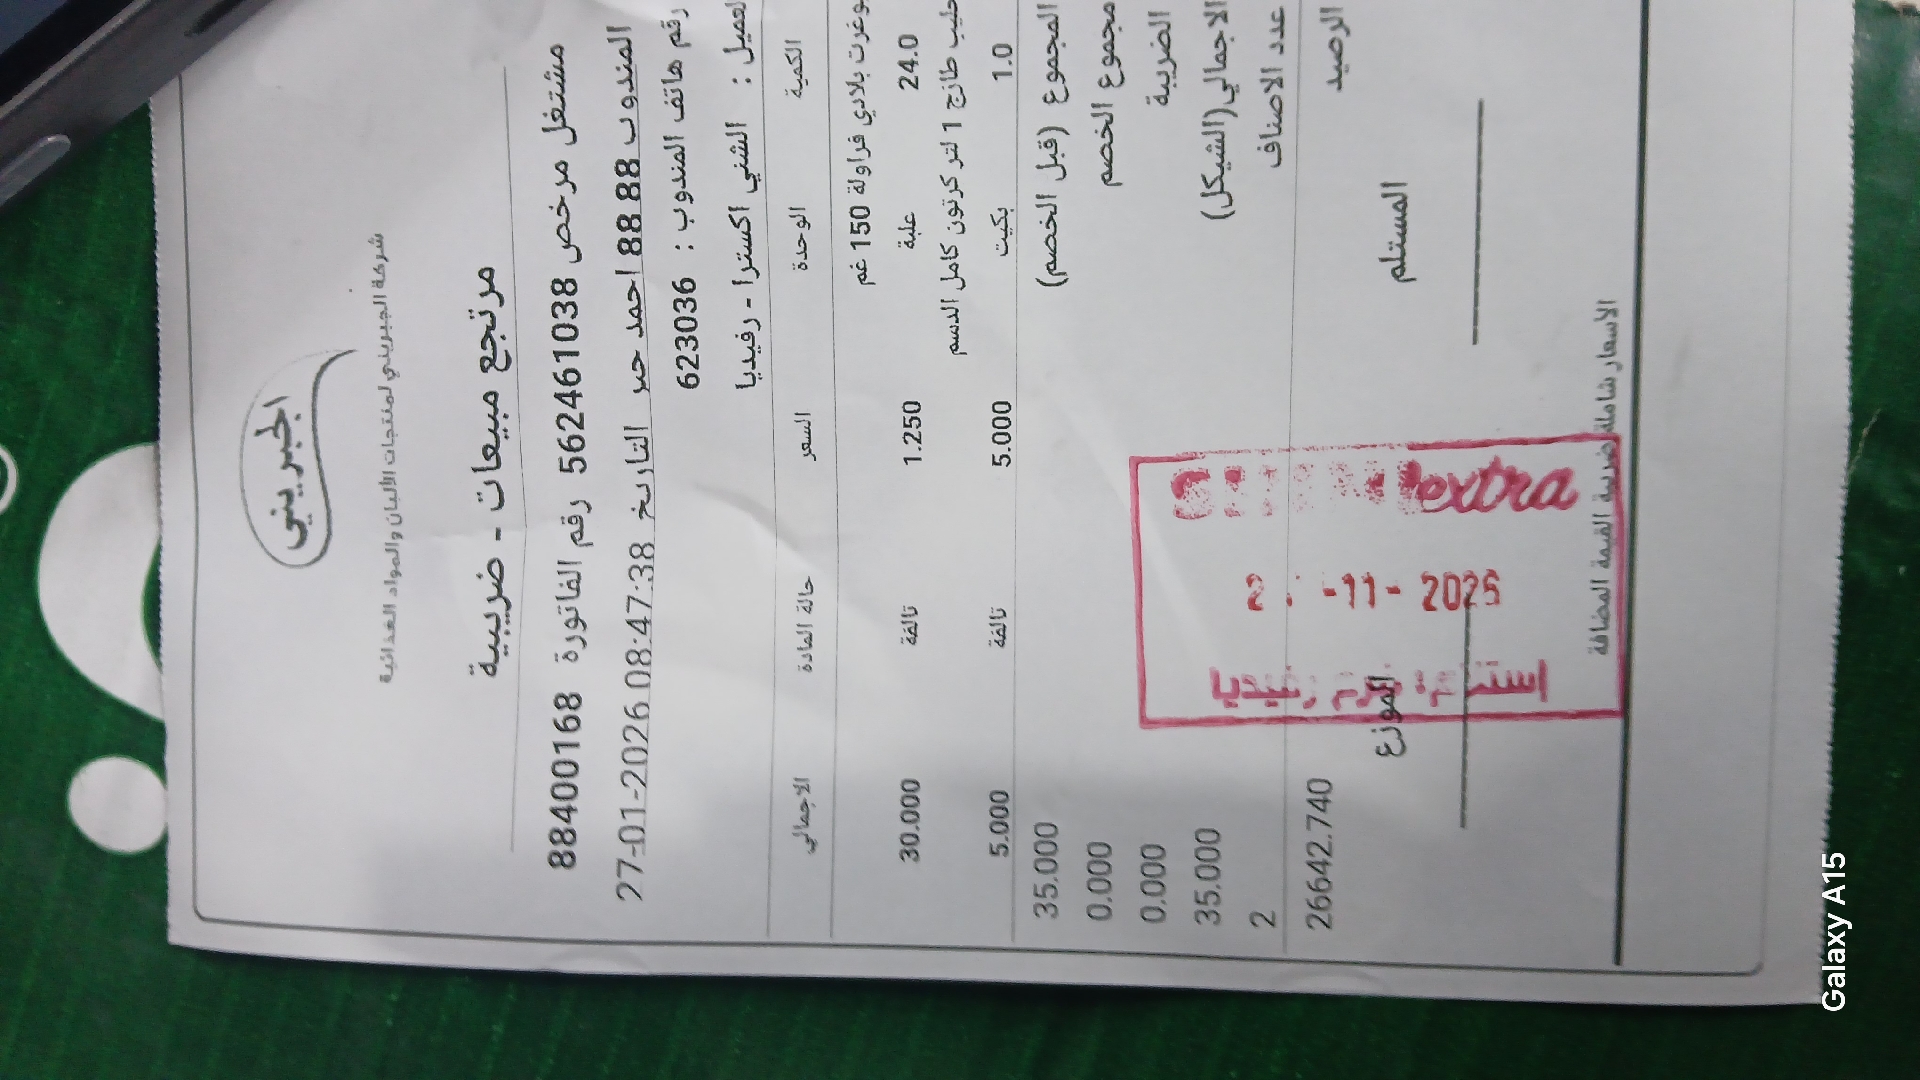 الجبريني
شركة الجبريني لمنتجات الألبان والمواد الغذائية
مرتجع مبيعات - ضريبية
مشتغل مرخص 562461038 رقم الفاتورة 88400168
المندوب 88 88 احمد جبر التاريخ 27-01-2026 08:47:38
رقم هاتف المندوب : 623036
لعميل : الشني اكسترا - رفيديا
الكمية الوحدة السعر حالة المادة الاجمالي
يوغرت بلادي فراولة 150 غم
24.0 علبة 1.250 تالفة 30.000
حليب طازج 1 لتر كرتون كامل الدسم
1.0 بكيت 5.000 تالفة 5.000
المجموع (قبل الخصم) 35.000
مجموع الخصم 0.000
الضريبة 0.000
الاجمالي(الشيكل) 35.000
عدد الاصناف 2
الرصيد 26642.740
المستلم الموزع
extra
-11- 2025
رفيديا
الاسعار شاملة ضريبة القيمة المضافة
Galaxy A15